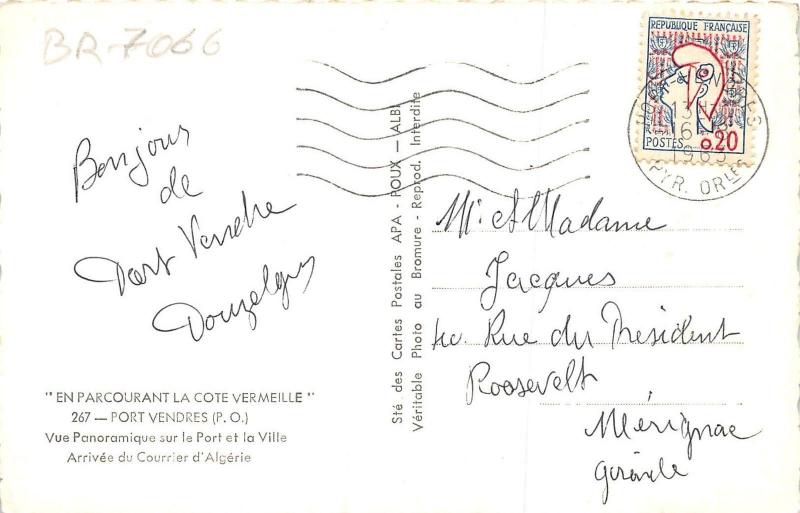 BR-7066
REPUBLIQUE FRANÇAISE
POSTES 0.20
13H
16
1963
PYR. ORLES
Bonjour
de
Port Vendre
Mr et Madame
Jacques
Rue du President
Roosevelt
Mérignac
Gironde
Sté. des Cartes Postales APA - POUX - ALBI
Véritable Photo au Bromure - Reprod. Interdite
" EN PARCOURANT LA COTE VERMEILLE "
267 — PORT VENDRES (P. O.)
Vue Panoramique sur le Port et la Ville
Arrivée du Courrier d'Algérie